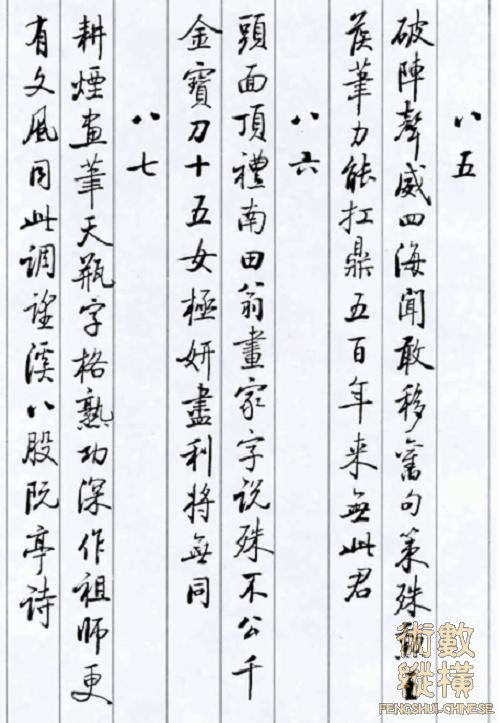 八五
破陣聲威四海聞敢移舊句策殊勳王
侯筆力能扛鼎五百年来無此君
八六
頭面頂禮南田翁畫家字說殊不公千
金寶刀十五女極妍盡利將無同
八七
耕煙畫筆天瓶字格熟功深作祖師更
有文風同此調望溪八股阮亭詩
術數
縱橫
FENGSHUI-CHINESE